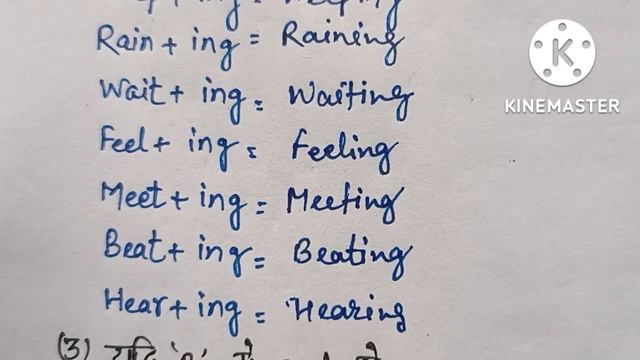 Rain + ing = Raining
Wait + ing = Waiting
Feel + ing = Feeling
Meet + ing = Meeting
Beat + ing = Beating
Hear + ing = Hearing
(3) यदि
K
KINEMASTER